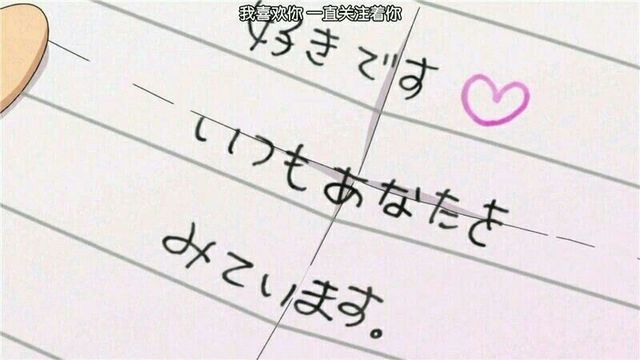 我喜欢你 一直关注着你
好きです
いつもあなたを
みています。